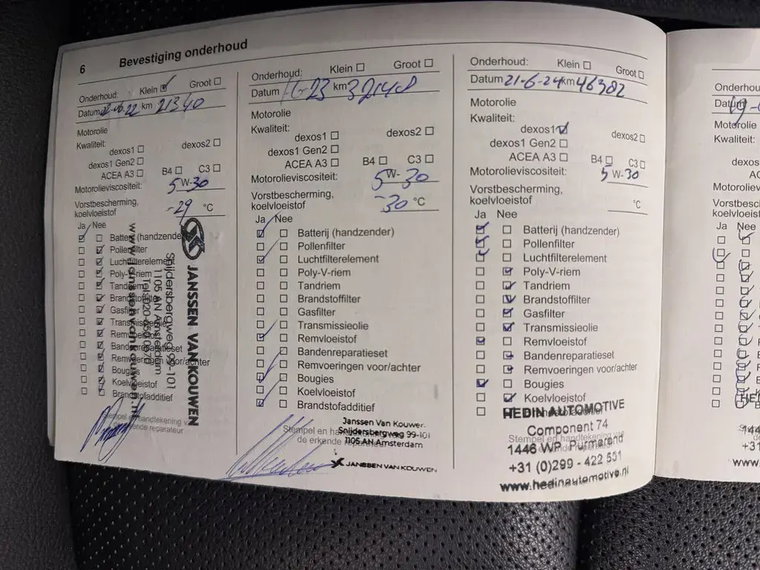 6 Bevestiging onderhoud
Onderhoud: Klein Groot
Datum km 21340
Motorolie
Kwaliteit:
dexos1 dexos2
dexos1 Gen2
ACEA A3 B4 C3
Motorolieviscositeit:
5W-30
Vorstbescherming,
koelvloeistof
-29 °C
Ja Nee
Batterij (handzender)
Pollenfilter
Luchtfilterelement
Poly-V-riem
Tandriem
Brandstoffilter
Gasfilter
Transmissieolie
Remvloeistof
Bandenreparatieset
Remvoeringen voor/achter
Bougies
Koelvloeistof
Brandstofadditief
Stempel en handtekening v
erkende reparateur
JANSSEN VAN KOUWEN
Snijdersbergweg 99-101
1105 AN Amsterdam
www.janssenvankouwen
Onderhoud: Klein Groot
Datum km 32148
Motorolie
Kwaliteit:
dexos1 dexos2
dexos1 Gen2
ACEA A3 B4 C3
Motorolieviscositeit:
5W-30
Vorstbescherming,
koelvloeistof
-30 °C
Ja Nee
Batterij (handzender)
Pollenfilter
Luchtfilterelement
Poly-V-riem
Tandriem
Brandstoffilter
Gasfilter
Transmissieolie
Remvloeistof
Bandenreparatieset
Remvoeringen voor/achter
Bougies
Koelvloeistof
Brandstofadditief
Janssen Van Kouwen
Snijdersbergweg 99-101
1105 AN Amsterdam
Stempel en
de erkende
JANSSEN VAN KOUWEN
Onderhoud: Klein Groot
Datum 21-6-24 km 46382
Motorolie
Kwaliteit:
dexos1 dexos2
dexos1 Gen2
ACEA A3 B4 C3
Motorolieviscositeit: 5W-30
Vorstbescherming,
koelvloeistof
°C
Ja Nee
Batterij (handzender)
Pollenfilter
Luchtfilterelement
Poly-V-riem
Tandriem
Brandstoffilter
Gasfilter
Transmissieolie
Remvloeistof
Bandenreparatieset
Remvoeringen voor/achter
Bougies
Koelvloeistof
HEDIN AUTOMOTIVE
Component 74
1446 WP Purmerend
+31 (0)299 - 422 531
www.hedinautomotive.nl
Onderhou
Datum
Motorolie
Kwaliteit:
dexos
dexos
ACE
Motorolie
Vorstbes
koelvloe
Ja Nee